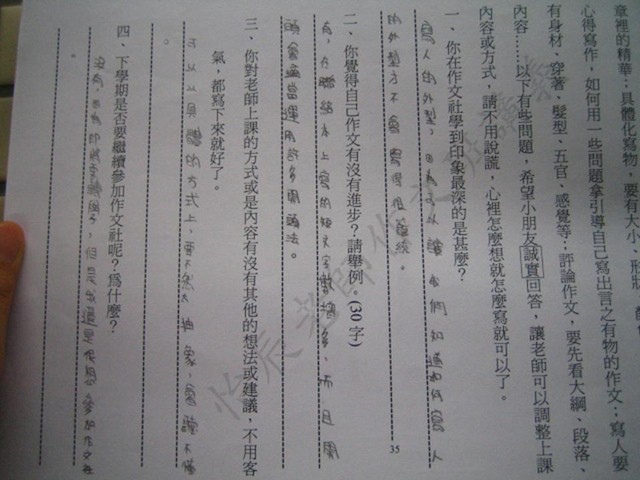 章裡的精華：具體化寫物，要有大小、形狀、
心得寫作，如何用一些問題拿引導自己寫出言之有物的作文：寫人要
有身材、穿著、髮型、五官、感覺等：評論作文，要先看大綱、段落、
內容……以下有些問題，希望小朋友誠實回答，讓老師可以調整上課
內容或方式，請不用說謊，心裡怎麼想就怎麼寫就可以了。
一、你在作文社學到印象最深的是甚麼？
寫人的外型，因為可以讓我們知道如何寫人
的外型方不會覺得很籠統。
二、你覺得自己作文有沒有進步？請舉例。(30字)
有，在聯絡本上寫的短文字數增多，而且開
頭會適當運用許多開頭法。
三、你對老師上課的方式或是內容有沒有其他的想法或建議，不用客
氣，都寫下來就好了。
可以以具體的方式上，要不然太抽象，會聽不懂
。
四、下學期是否要繼續參加作文社呢？為什麼？
沒有，因為即將要，但是我還是很想參加作文社
。
35
怡辰老師作文